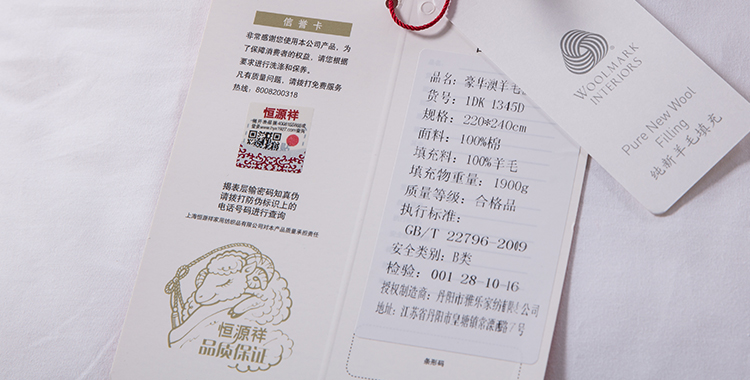 信誉卡
非常感谢您使用本公司产品，为
了保障消费者的权益，请您根据
要求进行洗涤和保养。
凡有质量问题，请拨打免费服务
热线：8008200318
恒源祥
揭表层输密码知真伪
请拨打防伪标识上的
电话号码进行查询
上海恒源祥家用纺织品有限公司对本产品质量承担责任
恒源祥
品质保证
品名：豪华澳羊毛
货号：1DK 1345D
规格：220*240cm
面料：100%棉
填充料：100%羊毛
填充物重量：1900g
质量等级：合格品
执行标准：
GB/T 22796-2009
安全类别：B类
检验：001 28-10-16
授权制造商：丹阳市雅乐家纺有限公司
地址：江苏省丹阳市皇塘镇常溧路7号
条形码
WOOLMARK
INTERIORS
Pure New Wool
Filling
纯新羊毛填充